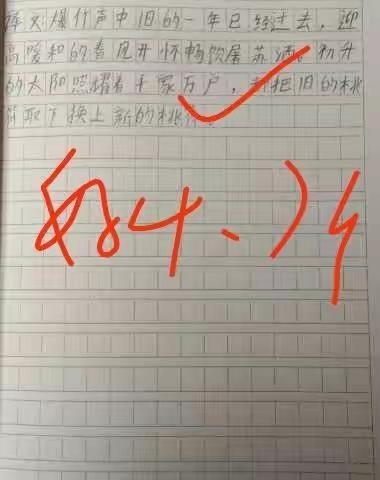 释义:爆竹声中旧的一年已经过去,迎
高暖和的春风开怀畅饮屠苏酒。初升
的太阳照耀着千家万户,都把旧的桃
符取下换上新的桃符。